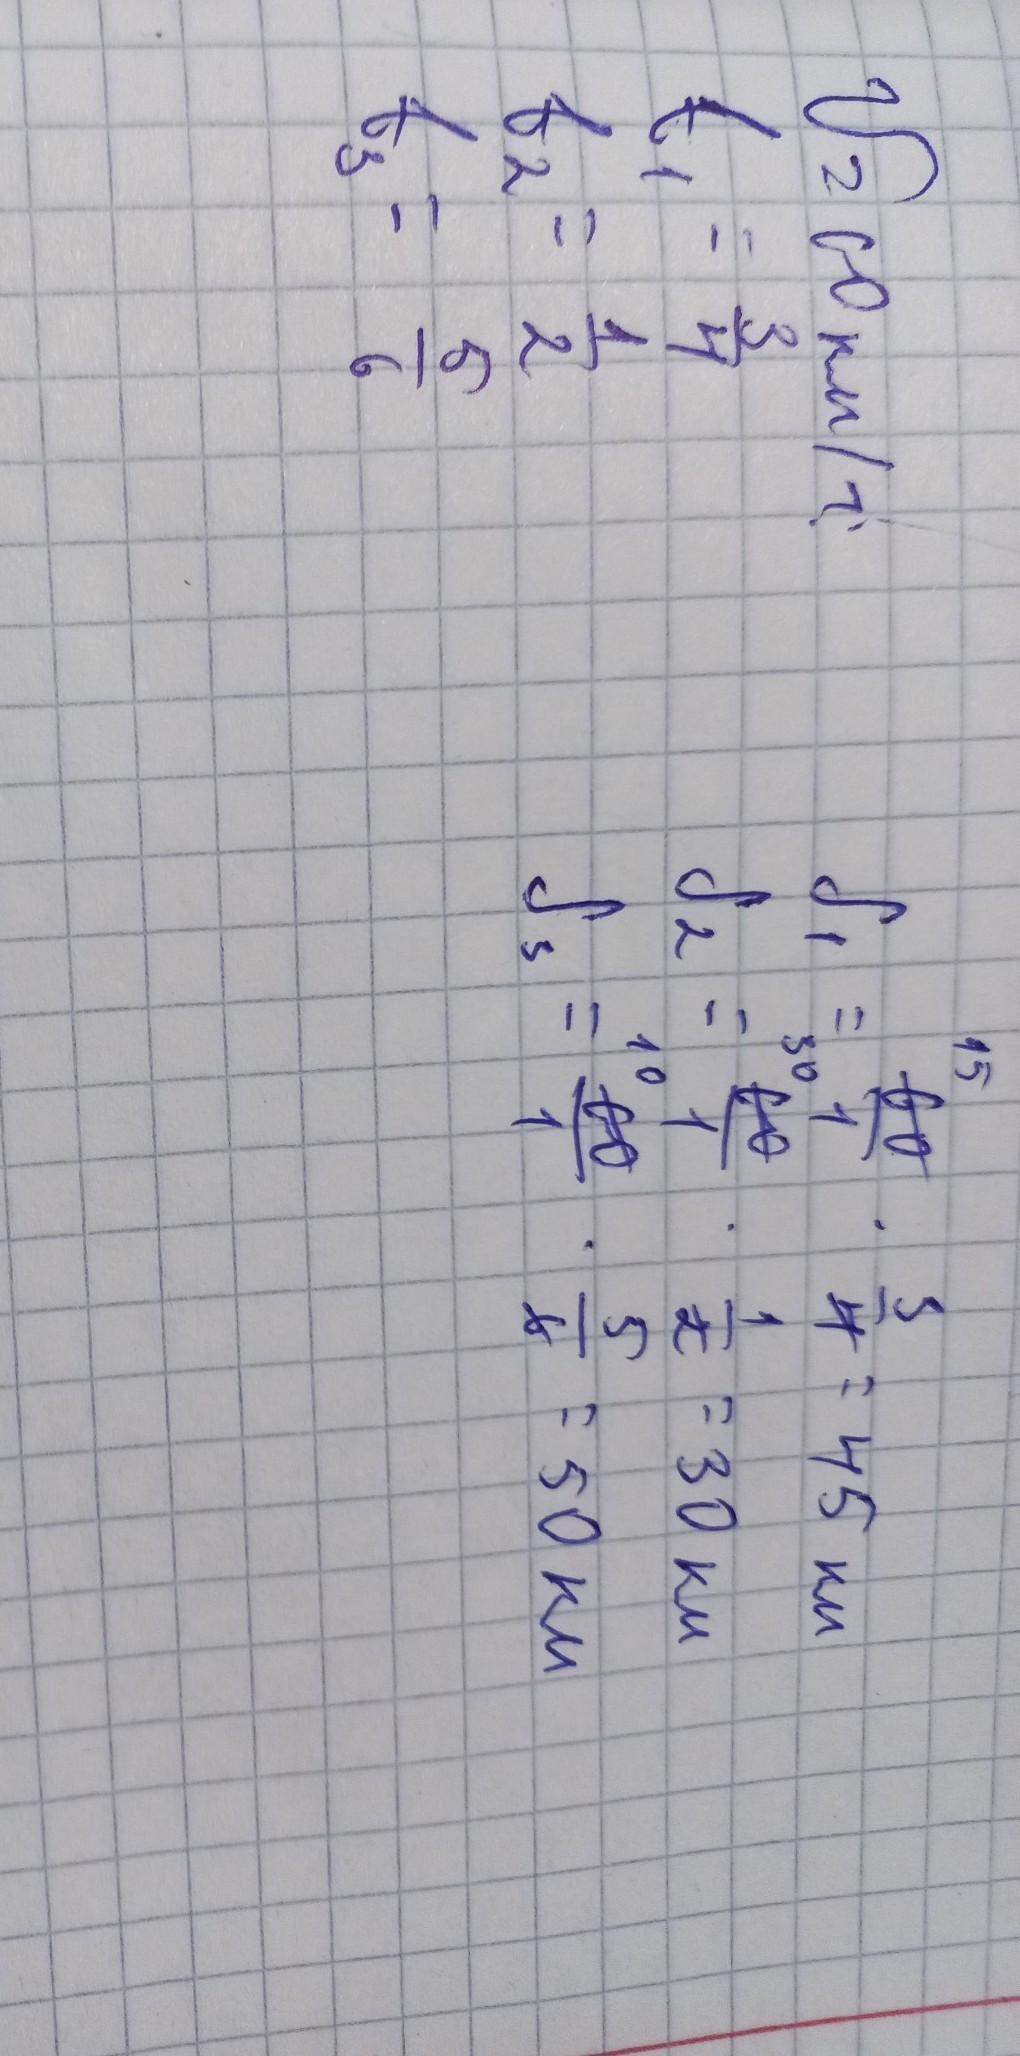 V = 60 км/ч
t₁ = 3/4
t₂ = 1/2
t₃ = 5/6
S₁ = 60/1 · 3/4 = 45 км
15
S₂ = 60/1 · 1/2 = 30 км
30
S₃ = 60/1 · 5/6 = 50 км
10